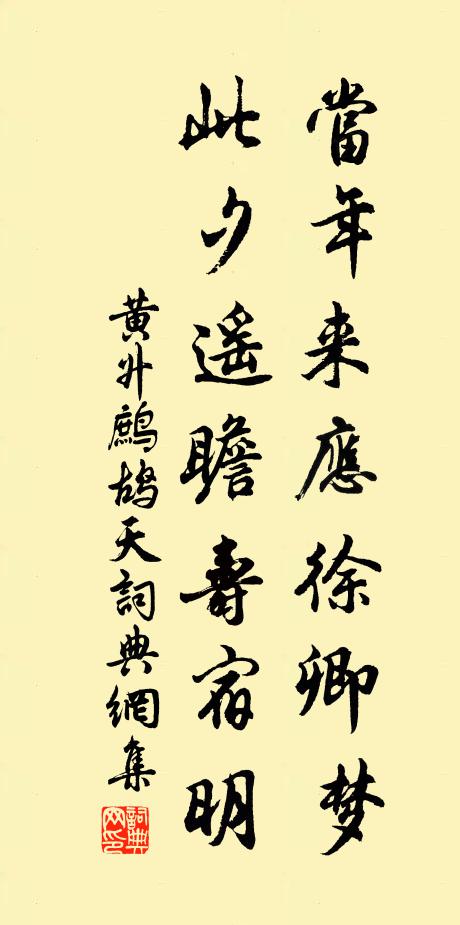 當年來應徐卿梦
此夕遥瞻壽宿明
黄升鷓鴣天詞典網集
詞典网印